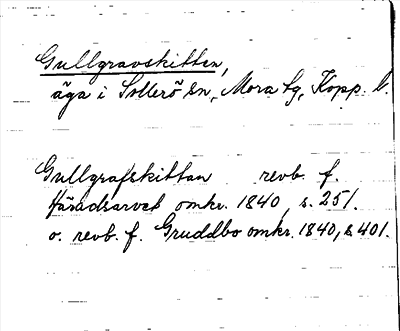 Gullgravskitten,
äga i Sollerö sn, Mora tg, Kopp. l.
Gullgrafskittan revb. f.
Händsarvet omkr. 1840, s. 251.
o. revb. f. Gruddbo omkr. 1840, s. 401.